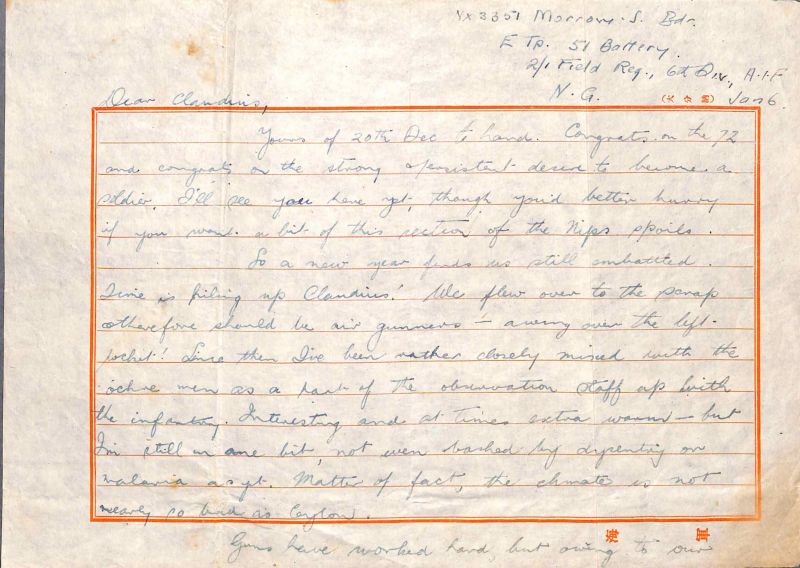 Vx3351 Morrow. S. Bdr.
E Tp. 51 Battery.
2/1 Field Reg., 6th Div., A.I.F
N.G. Jan 6.
Dear Claudius,
Yours of 20th Dec to hand. Congrats on the 72
and congrats on the strong & persistent desire to become a
soldier. I'll see you here yet, though you'd better hurry
if you want a bit of this section of the Nips spoils.
So a new year finds us still embattled.
Time is piling up Claudius! We flew over to the scrap
& therefore should be air gunners — a wing over the left
pocket! Since then I've been rather closely mixed with the
ochre men as a part of the observation staff up with
the infantry. Interesting and at times extra warm — but
I'm still in one bit, not even bashed by dysentry or
malaria as yt. Matter of fact, the climate is not
nearly so bad as Ceylon.
海 軍
Guns have worked hard, but owing to our